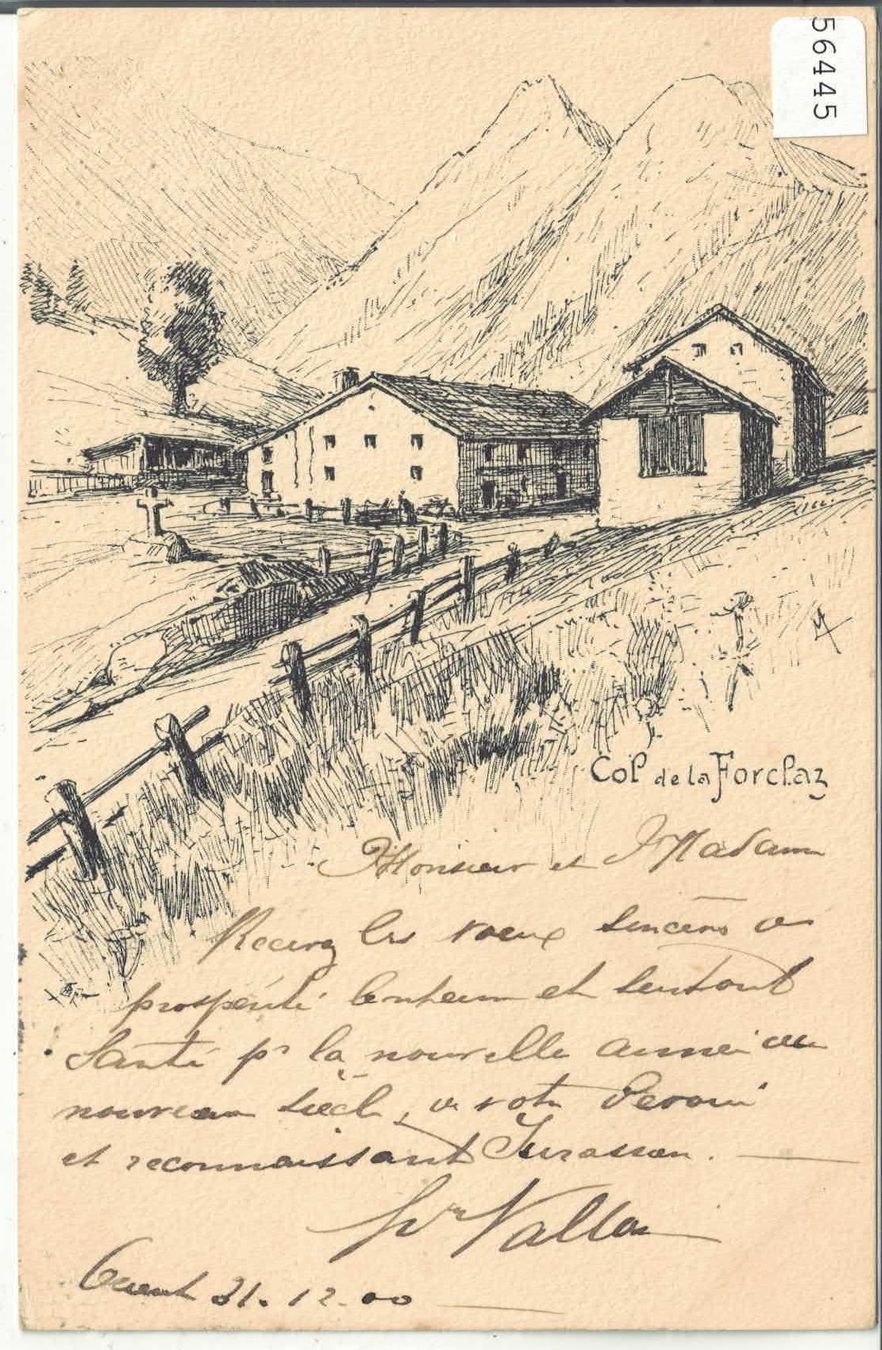 56445
Col de la Forclaz
Monsieur et Madame
Recevez les vœux sincères de
prospérité bonheur et surtout
Santé pr la nouvelle année du
nouveau siècle, de votre dévoué
et reconnaissant Jurassien.
Vallon
31.12.00